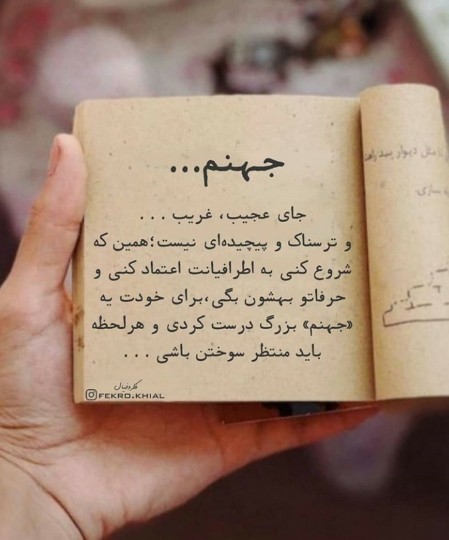 جهنم...
جای عجیب، غریب . . .
و ترسناک و پیچیده‌ای نیست؛همین که
شروع کنی به اطرافیانت اعتماد کنی و
حرفاتو بهشون بگی،برای خودت یه
«جهنم» بزرگ درست کردی و هرلحظه
باید منتظر سوختن باشی . . .
فکروخیال
FEKRO.KHIAL
مثل دیوار
سازی.